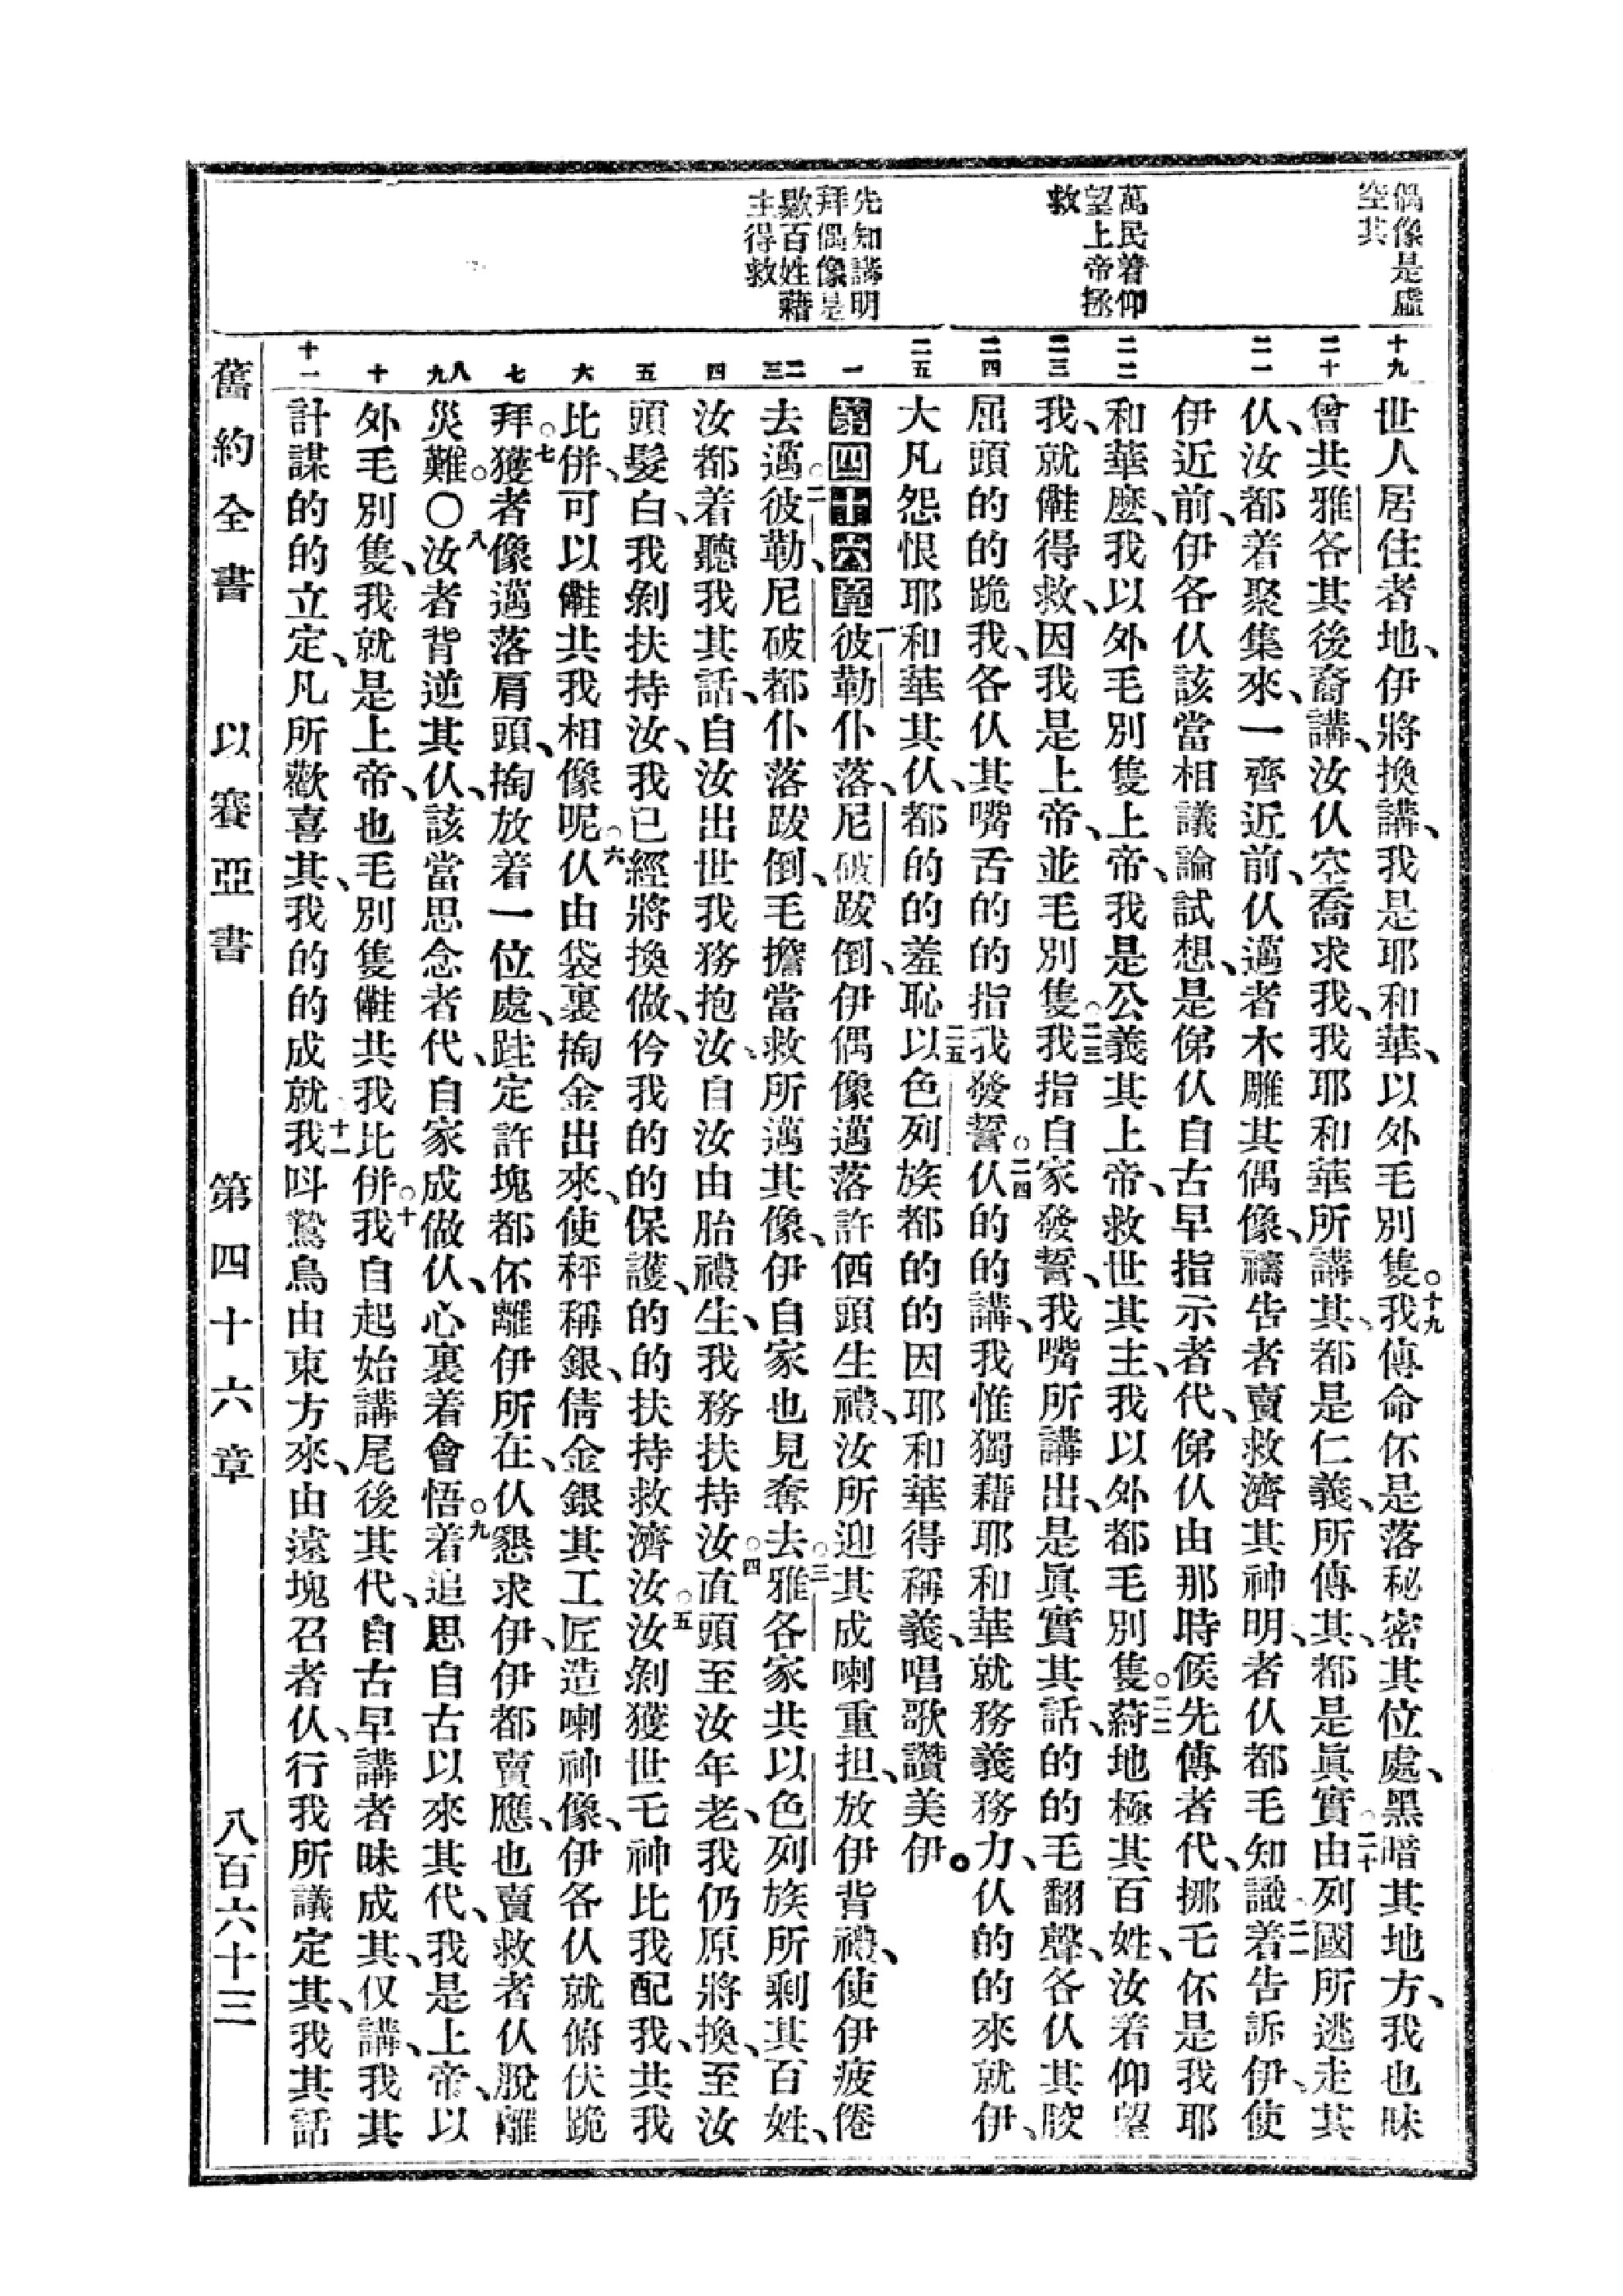 偶像是虛
空其
萬民着仰
望上帝拯
救
先知講明
拜偶像是
歟百姓藉
主得救
十九
二十
二一
二二
二三
二四
二五
一
二三
四
五
六
七
八九
十
十一
世人居住者地、伊將換講、我是耶和華、以外毛別隻。十九我傳命伓是落秘密其位處、黑暗其地方、我也昧
曾共雅各其後裔講、汝仈空喬求我、我耶和華所講其、都是仁義、所傳其、都是眞實。二十由列國所逃走其
仈、汝都着聚集來、一齊近前、仈邁者木雕其偶像、禱告者賣救濟其神明、者仈都毛知識。二一着告訴伊、使
伊近前、伊各仈該當相議論試想、是俤仈自古早指示者代、俤仈由那時候先傳者代、挪乇伓是我耶
和華麽、我以外毛別隻上帝、我是公義其上帝、救世其主、我以外都毛別隻。二二藭地極其百姓、汝着仰望
我、就㒕得救、因我是上帝、並毛別隻。二三我指自家發誓、我嘴所講出、是眞實其話、的的毛翻聲、各仈其骹
屈頭的的跪我、各仈其嘴舌的的指我發誓。二四仈的的講、我惟獨藉耶和華、就務義務力、仈的的來就伊、
大凡怨恨耶和華其仈、都的的羞恥。二五以色列族都的的因耶和華得稱義、唱歌讚美伊。
第四十六章一彼勒仆落、尼破跋倒、伊偶像邁落許俹頭生禮、汝所迎其成喇重担、放伊背禮、使伊疲倦
去邁。二彼勒、尼破都仆落跋倒、毛擔當救所邁其像、伊自家也見奪去。三雅各家共以色列族所剩其百姓、
汝都着聽我其話、自汝出世我務抱汝、自汝由胎禮生、我務扶持汝。四直頭至汝年老、我仍原將換、至汝
頭髮白、我剝扶持汝、我已經將換做、伱我的的保護、的的扶持救濟汝。五汝剝獲世乇神比我配我、共我
比併、可以㒕共我相像呢。六仈由袋裏掏金出來、使秤稱銀、倩金銀其工匠造喇神像、伊各仈就俯伏跪
拜。七獲者像邁落肩頭、掏放着一位處、跬定許塊都伓離伊所在、仈懇求伊、伊都賣應、也賣救者仈脫離
災難。〇八汝者背逆其仈、該當思念者代、自家成做仈、心裏着會悟。九着追思自古以來其代、我是上帝、以
外毛別隻、我就是上帝、也毛別隻㒕共我比併。十我自起始講尾後其代、自古早講者昧成其、仅講、我其
計謀的的立定、凡所歡喜其、我的的成就。十一我叫鷙鳥由東方來、由遠塊召者仈、行我所議定其、我其話
舊約全書　以賽亞書　第四十六章　八百六十三